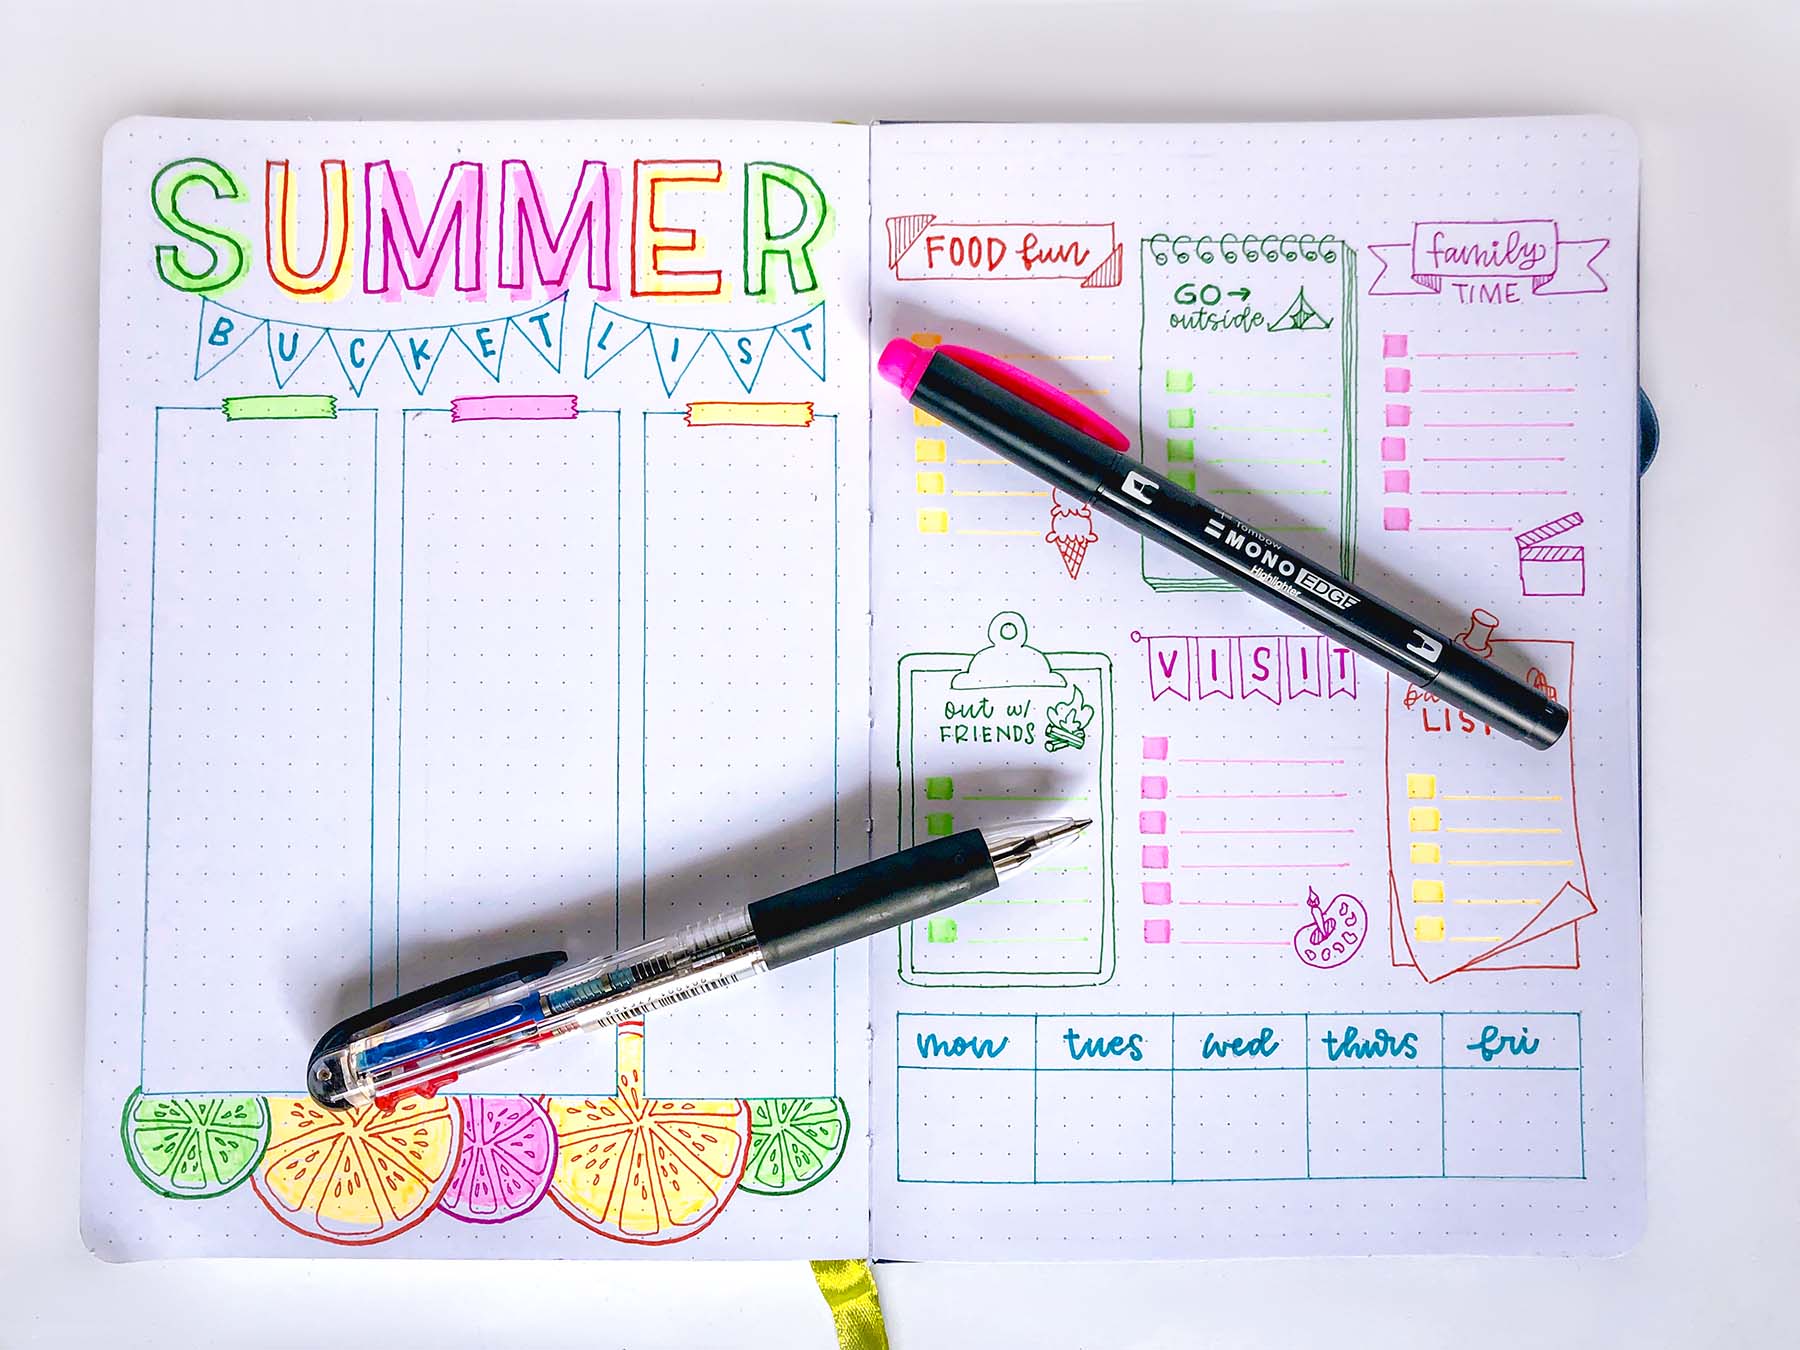 SUMMER
BUCKET LIST
FOOD fun
GO→
outside
family
TIME
Tombow
MONO EDGE
Highlighter
out w/
FRIENDS
VISIT
LIST
mon tues wed thurs fri